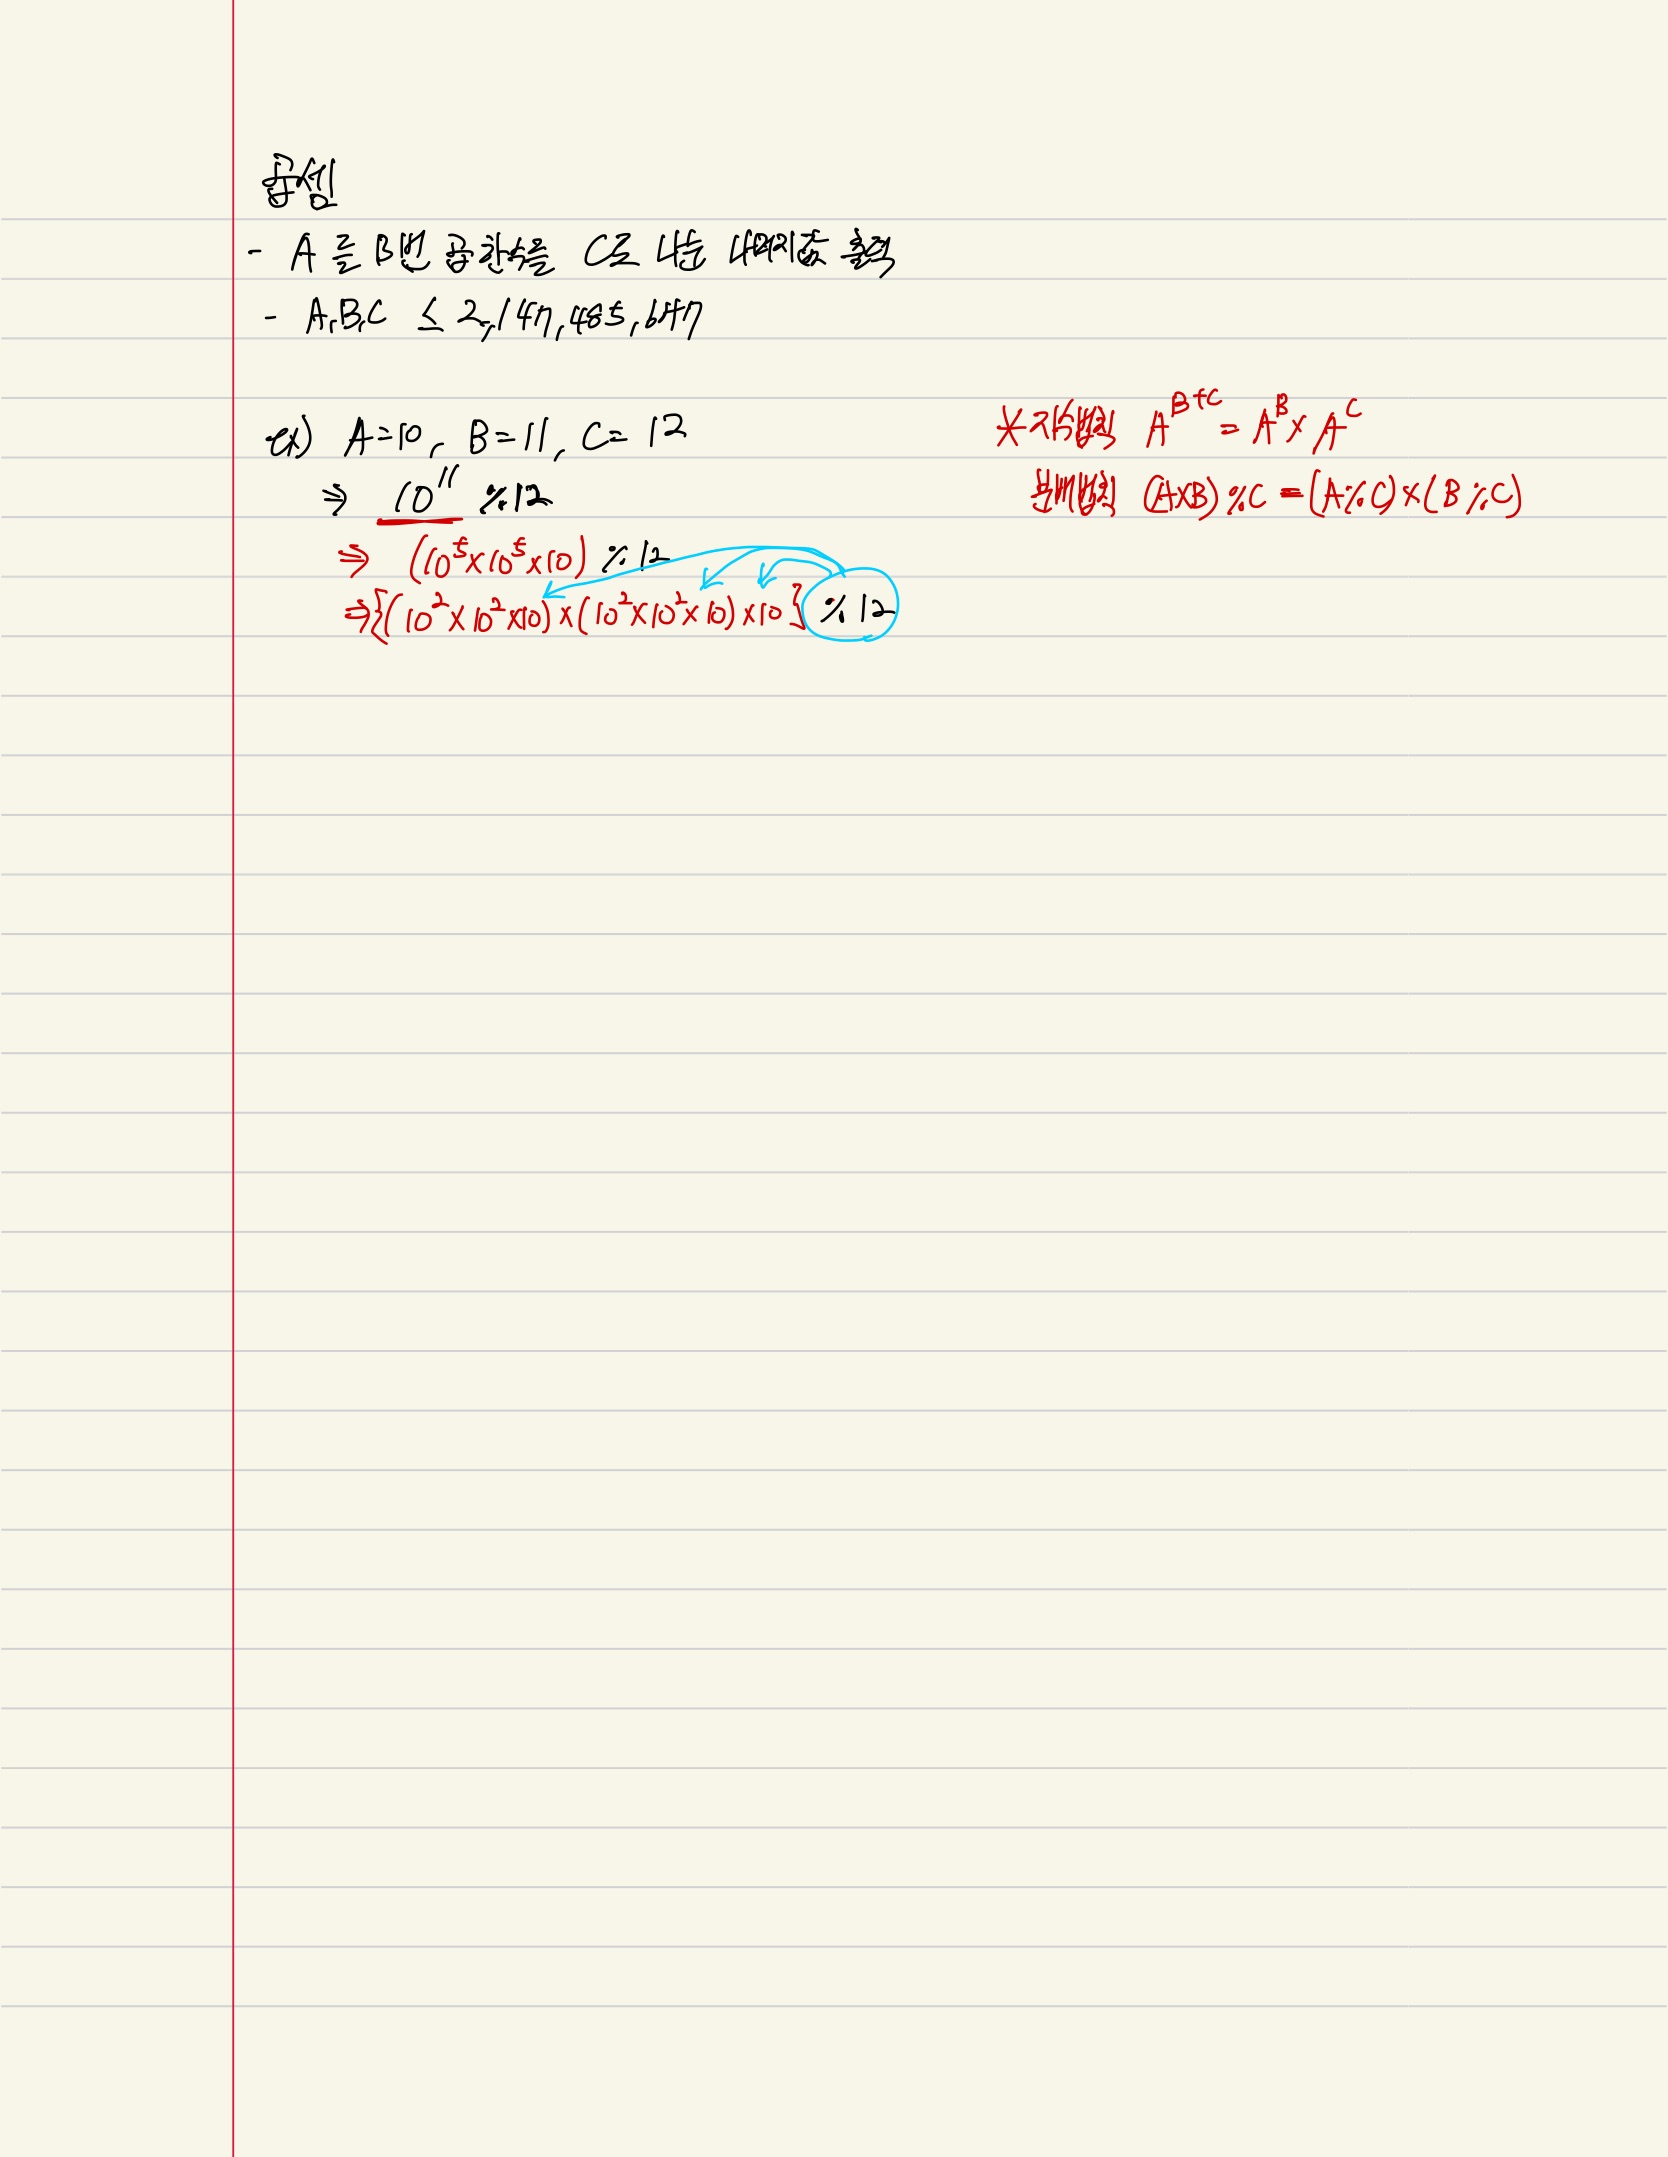 곱셈
- A를 B번 곱한수를 C로 나눈 나머지값 출력
- A,B,C ≤ 2,147,485,647
ex) A=10, B=11, C=12
⇒ 10¹¹ %12
⇒ (10⁵×10⁵×10) %12
⇒{(10²×10²×10)×(10²×10²×10)×10} %12
*지수법칙 A^(B+C) = A^B × A^C
분배법칙 (A×B)%C = (A%C)×(B%C)